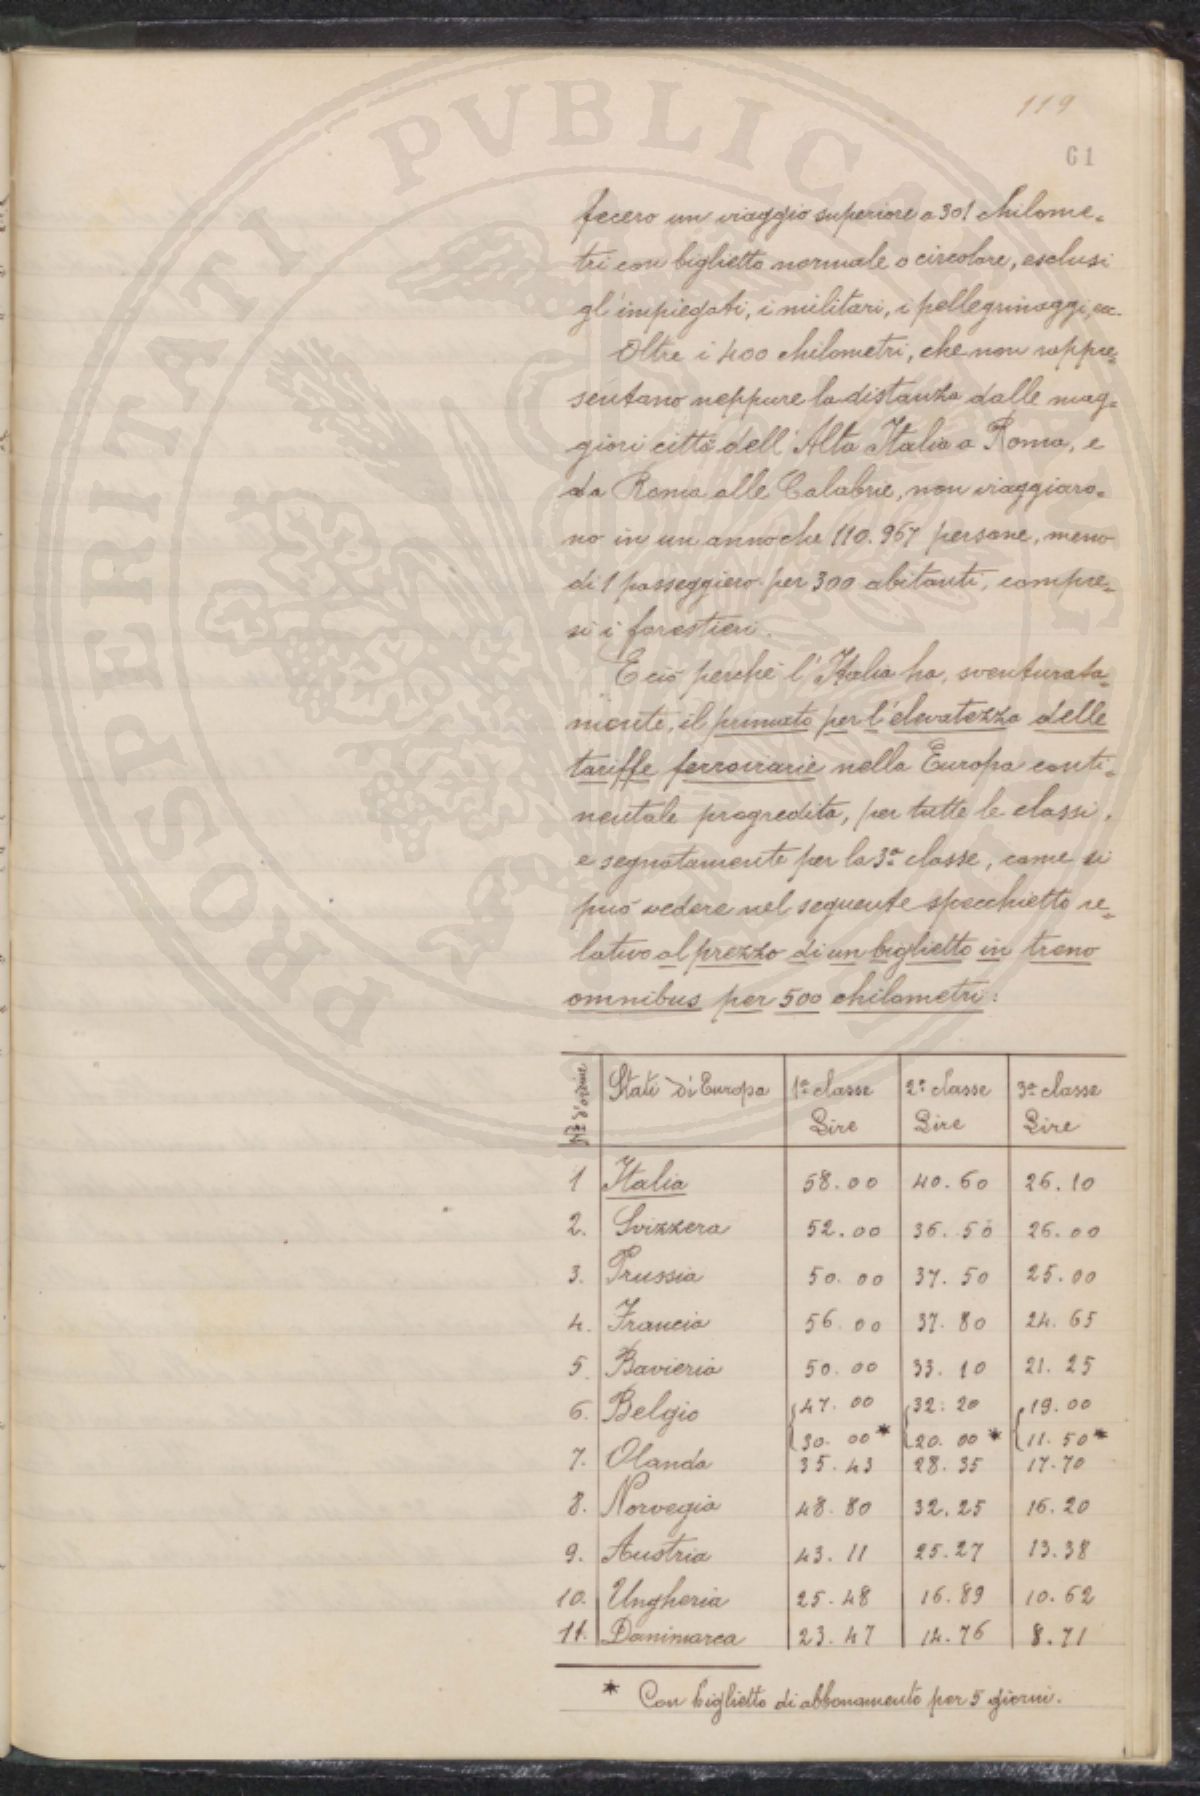 119
61
fecero un viaggio superiore a 301 chilome=
tri con biglietto normale o circolare, esclusi
gl'impiegati, i militari, i pellegrinaggi, ecc.
Oltre i 400 chilometri, che non rappre=
sentano neppure la distanza dalle mag=
giori città dell'Alta Italia a Roma, e
da Roma alle Calabrie, non viaggiaro=
no in un anno che 110.967 persone, meno
di 1 passeggiero per 300 abitanti, compre=
si i forestieri.
E ciò perchè l'Italia ha, sventurata=
mente, il primato per l'elevatezza delle
tariffe ferroviarie nella Europa conti=
nentale progredita, per tutte le classi,
e segnatamente per la 3ª classe, come si
può vedere nel seguente specchietto re=
lativo al prezzo di un biglietto in treno
omnibus per 500 chilometri:
Nº d'ordine Stati di Europa 1ª classe Lire 2ª classe Lire 3ª classe Lire
1 Italia 58.00 40.60 26.10
2. Svizzera 52.00 36.50 26.00
3. Prussia 50.00 37.50 25.00
4. Francia 56.00 37.80 24.65
5. Bavieria 50.00 33.10 21.25
6. Belgio 47.00 32.20 19.00
30.00* 20.00* 11.50*
7. Olanda 35.43 28.35 17.70
8. Norvegia 48.80 32.25 16.20
9. Austria 43.11 25.27 13.38
10. Ungheria 25.48 16.89 10.62
11. Danimarca 23.47 14.76 8.71
* Con biglietto di abbonamento per 5 giorni.
PROSPERITATI PVBLICAE